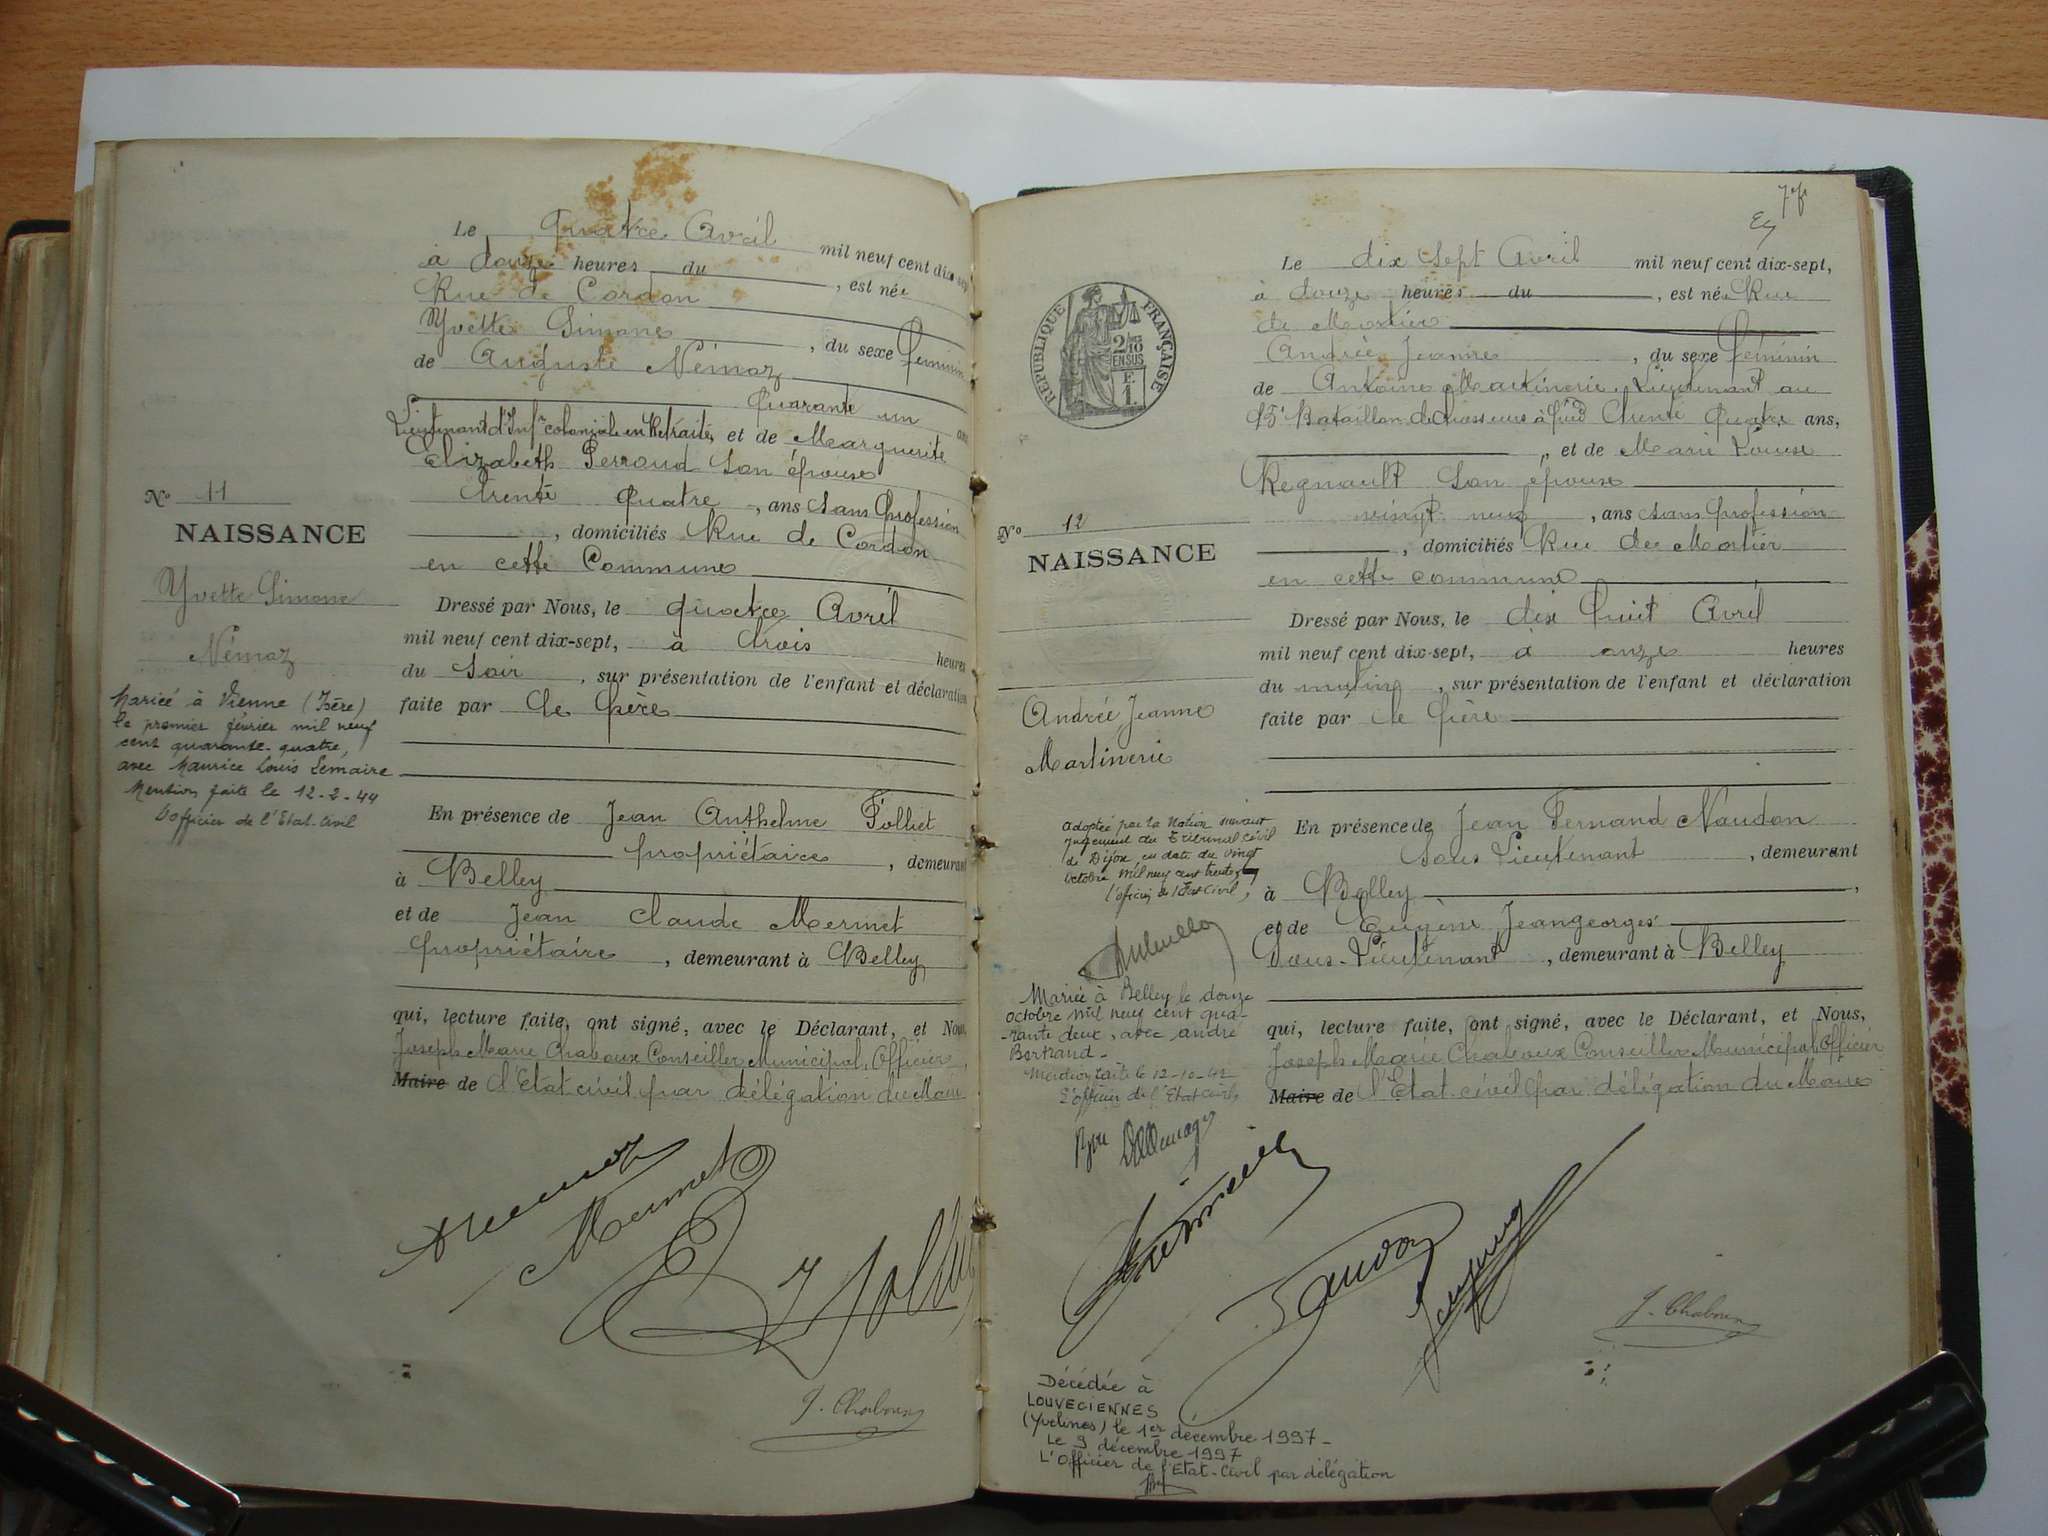 Le Quatre Avril mil neuf cent dix-sept
à douze heures du , est née
Rue de Cordon
Yvette Simone , du sexe féminin
de Auguste Némoz
Quarante un ans
Lieutenant d'Infie coloniale en Retraite, et de Marguerite
Elizabeth Perroud son épouse
trente quatre , ans sans profession
, domiciliés Rue de Cordon
en cette Commune
Dressé par Nous, le quatre Avril
mil neuf cent dix-sept, à trois heures
du soir , sur présentation de l'enfant et déclaration
faite par le Père
En présence de Jean Anthelme Folliet
propriétaire , demeurant
à Belley
et de Jean Claude Mermet
propriétaire , demeurant à Belley
qui, lecture faite, ont signé, avec le Déclarant, et Nous,
Joseph Marie Chaboux Conseiller Municipal, Officier
Maire de l'Etat civil par délégation du Maire
Mermet
J. Chaboux
No 11
NAISSANCE
Yvette Simone
Némoz
Mariée à Vienne (Isère)
le premier février mil neuf
cent quarante-quatre,
avec Maurice Louis Lemaire
Mention faite le 12-2-44
L'officier de l'Etat-Civil
7
REPUBLIQUE FRANÇAISE
2/10
EN SUS
Le dix sept Avril mil neuf cent dix-sept,
à douze heures du , est née Rue
de Mortier
Andrée Jeanne , du sexe féminin
de Antoine Martinerie, Lieutenant au
Bataillon de chasseurs à pied trente quatre ans,
, et de Marie Louise
Regnault son épouse
vingt neuf , ans sans profession
, domiciliés Rue de Mortier
en cette commune
Dressé par Nous, le dix huit Avril
mil neuf cent dix-sept, à onze heures
du matin , sur présentation de l'enfant et déclaration
faite par le Père
En présence de Jean Fernand Naudon
Sous Lieutenant , demeurant
à Belley ,
et de Eugène Jeangeorges
Sous-Lieutenant , demeurant à Belley
qui, lecture faite, ont signé, avec le Déclarant, et Nous,
Joseph Marie Chaboux Conseiller Municipal Officier
Maire de l'Etat civil par délégation du Maire
J. Chaboux
No 12
NAISSANCE
Andrée Jeanne
Martinerie
Adoptée par la Nation suivant
jugement du Tribunal Civil
de Dijon en date du vingt
octobre mil neuf cent trente
l'officier de l'Etat Civil,
Mariée à Belley le douze
octobre mil neuf cent qua-
-rante deux, avec André
Bertrand -
Mention faite le 12-10-42
L'officier de l'Etat civil,
Décédée à
LOUVECIENNES
(Yvelines) le 1er décembre 1997 -
Le 9 décembre 1997
L'Officier de l'Etat-Civil par délégation